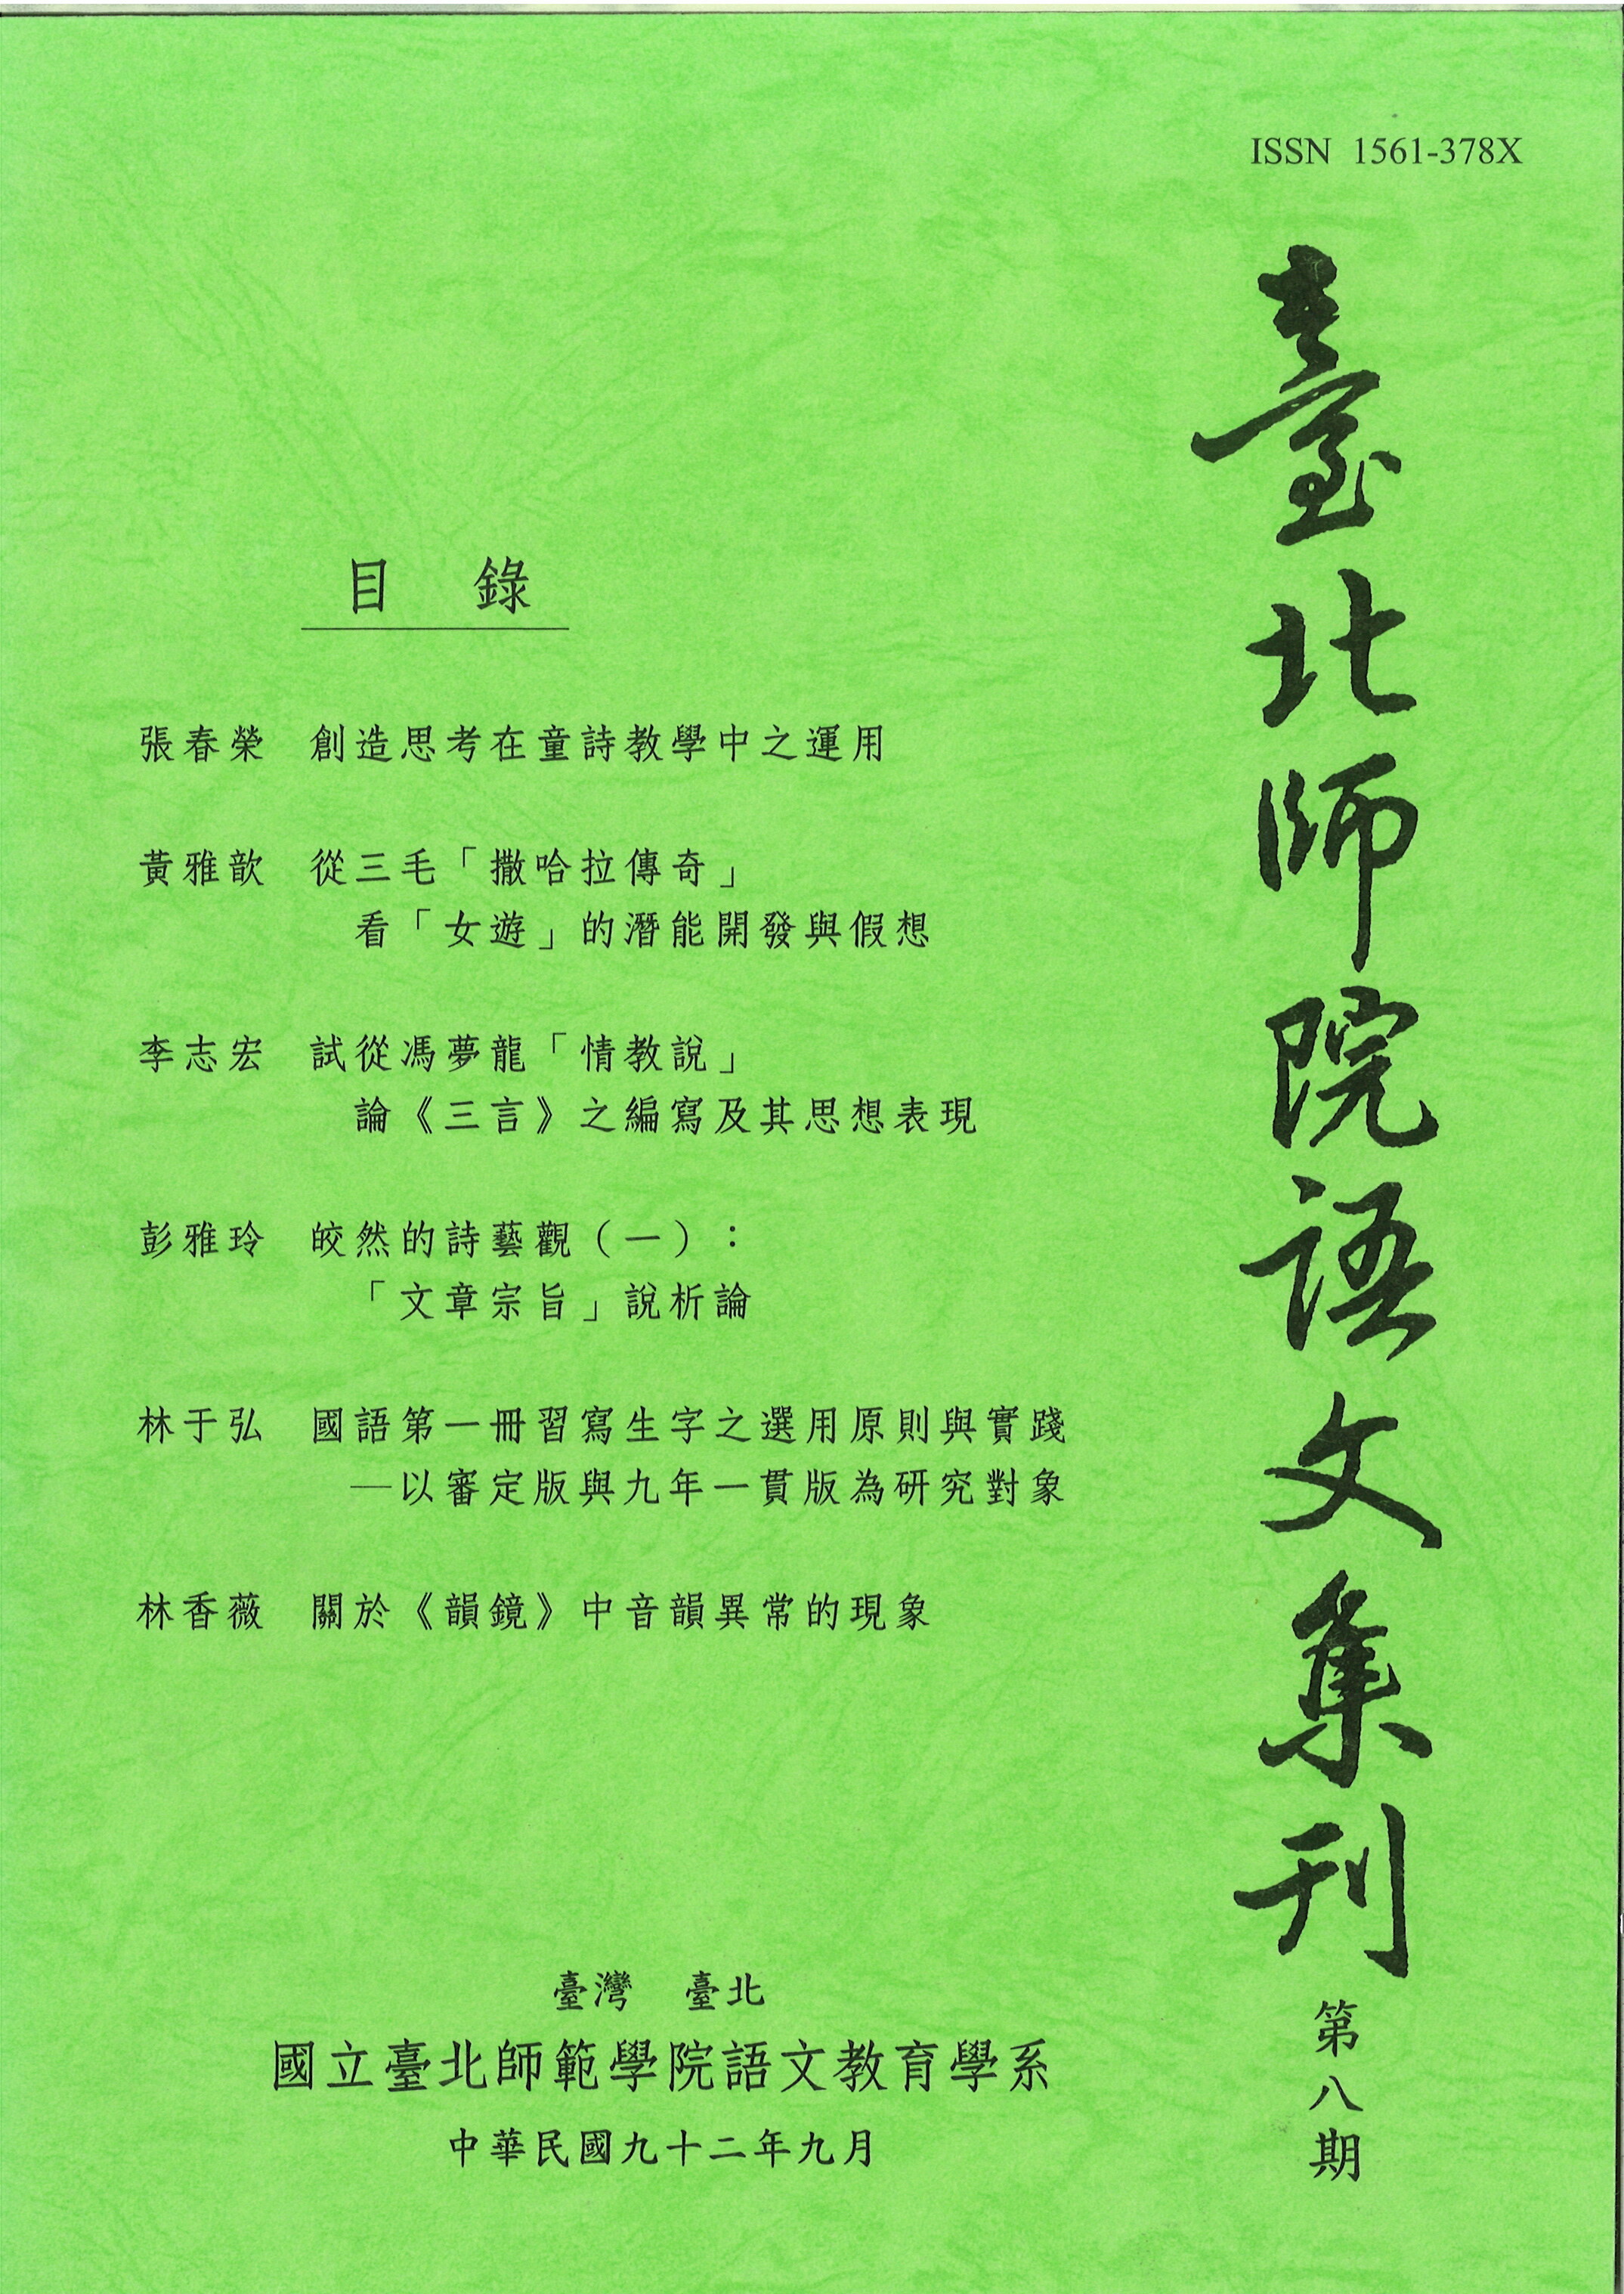 ISSN 1561-378X
臺北師院語文集刊
第八期
目 錄
張春榮 創造思考在童詩教學中之運用
黃雅歆 從三毛「撒哈拉傳奇」
看「女遊」的潛能開發與假想
李志宏 試從馮夢龍「情教說」
論《三言》之編寫及其思想表現
彭雅玲 皎然的詩藝觀（一）：
「文章宗旨」說析論
林于弘 國語第一冊習寫生字之選用原則與實踐
─以審定版與九年一貫版為研究對象
林香薇 關於《韻鏡》中音韻異常的現象
臺灣 臺北
國立臺北師範學院語文教育學系
中華民國九十二年九月